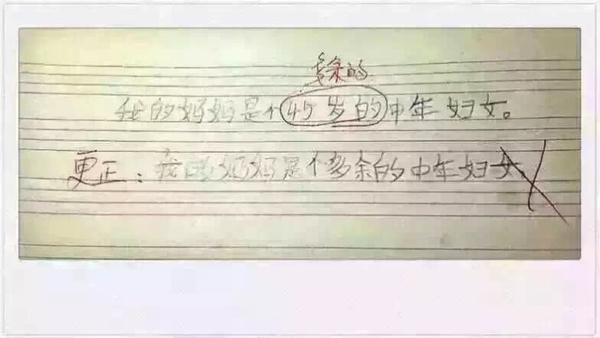 多余的
我的妈妈是个45岁的中年妇女。
更正：我的妈妈是个多余的中年妇女